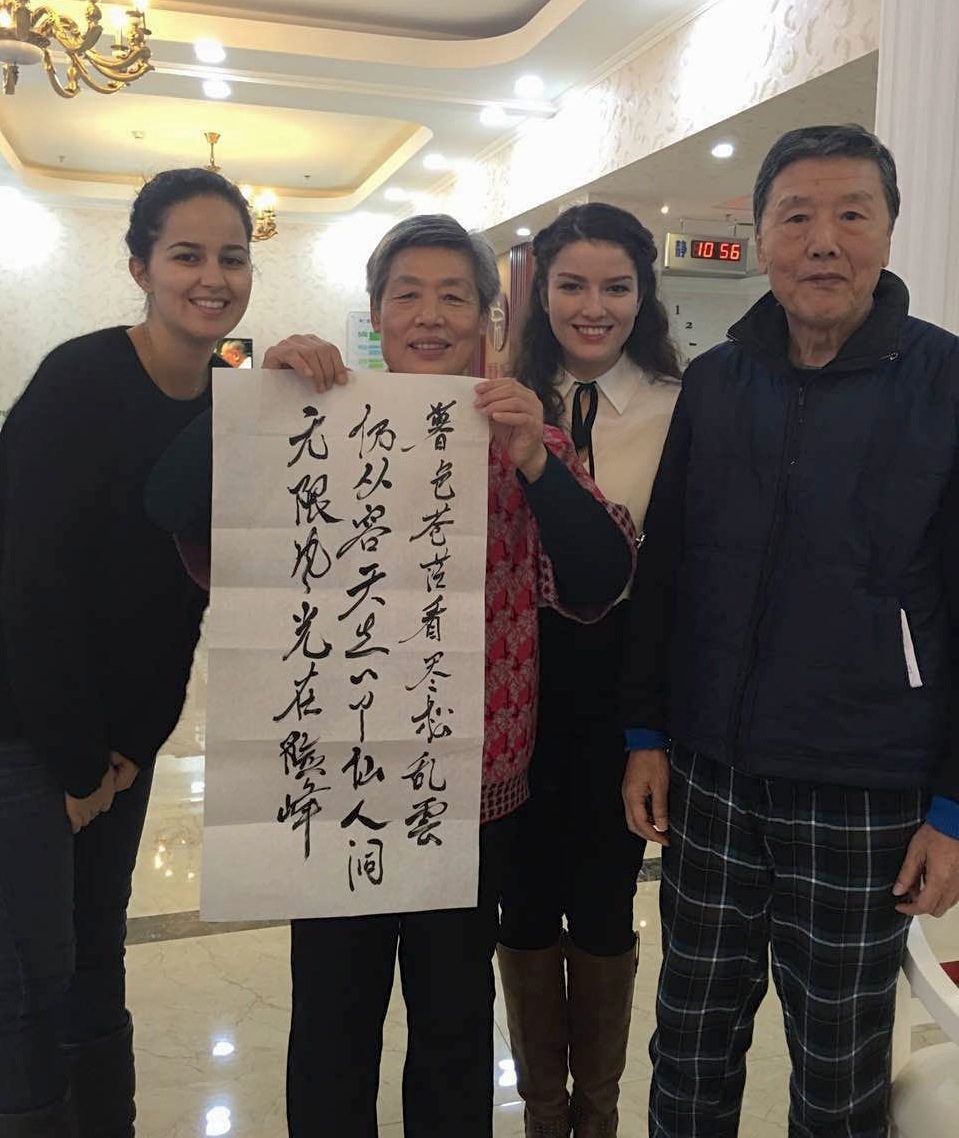 暮色苍茫看尽松乱雲
仍从容天生一个仙人洞
无限风光在险峰
静 10 56
1
2